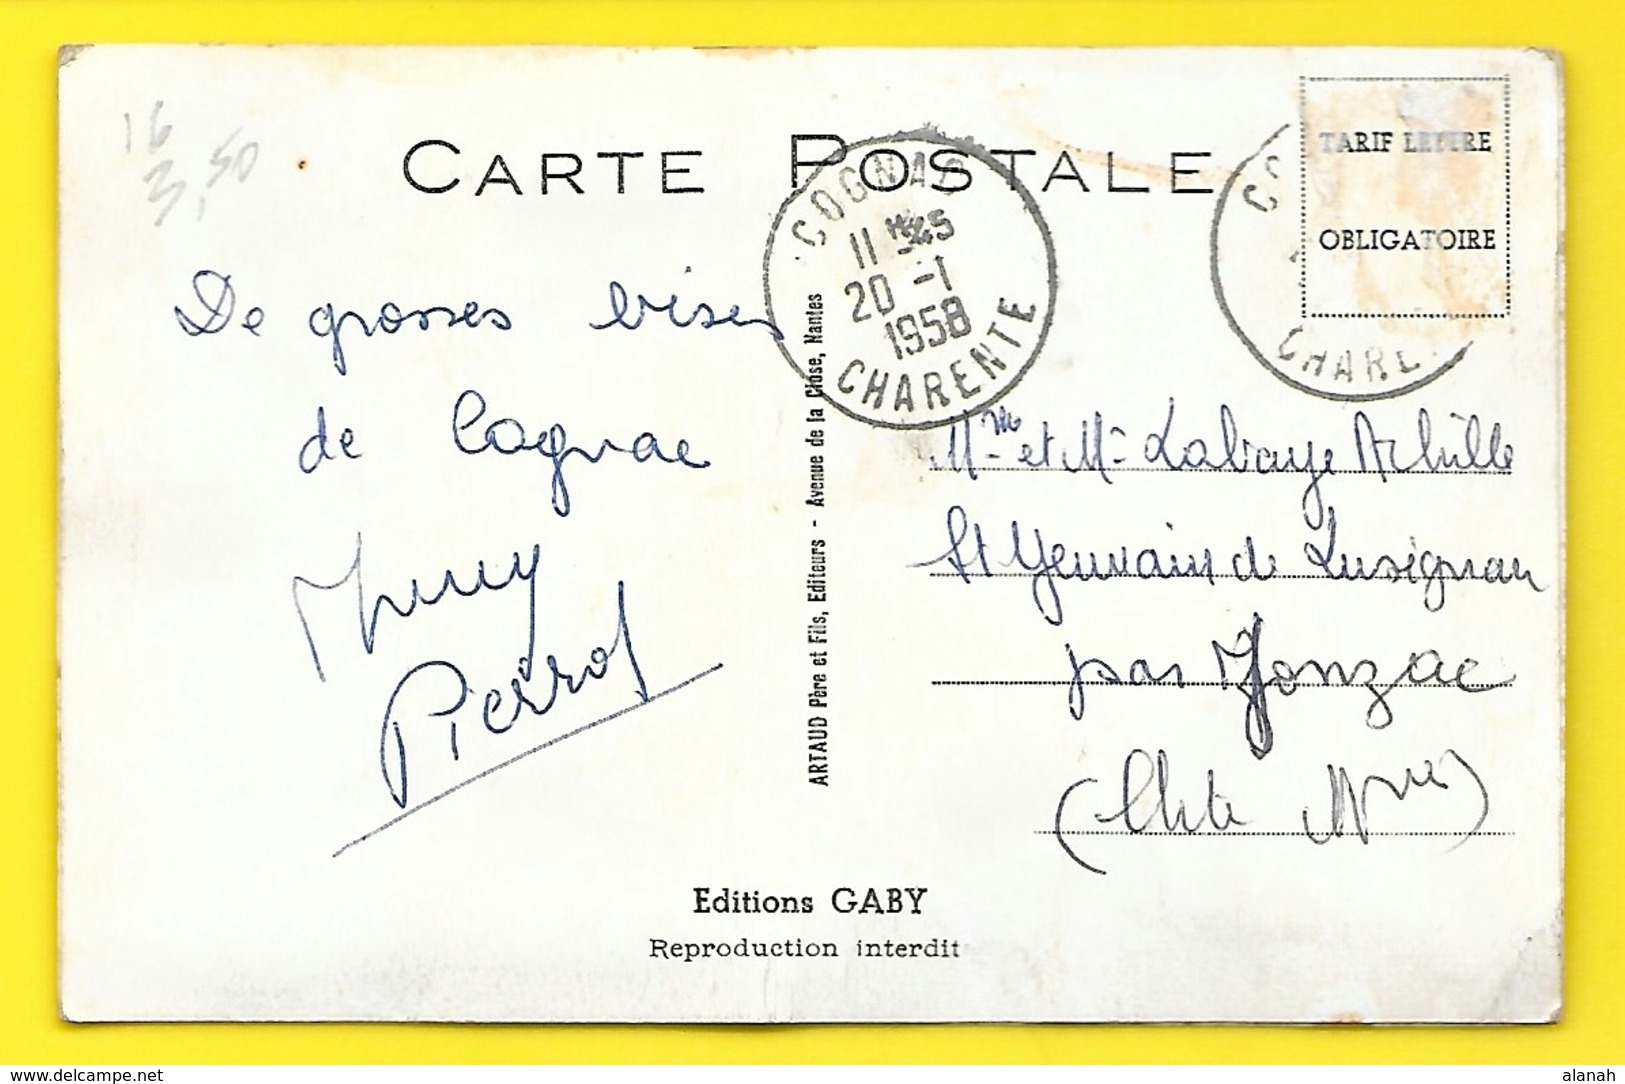 16
3,50
CARTE POSTALE
COGNAC
11H45
20 -1
1958
CHARENTE
CHARE
TARIF LETTRE
OBLIGATOIRE
De grosses bises
de Cognac
Pierrot
ARTAUD Père et Fils, Editeurs - Avenue de la Close, Nantes
Mme et Mr Labaye Achille
St Germain de Lusignan
par Jonzac
(Chte Mme)
Editions GABY
Reproduction interdit
delcampe.net
alanah